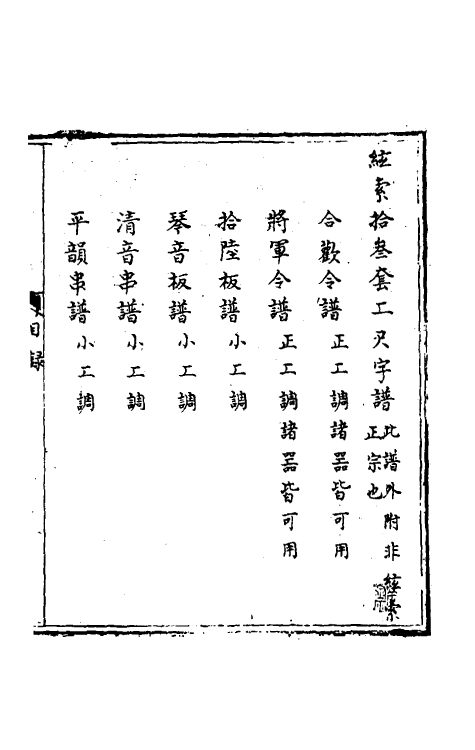 絃索拾叁套工尺字譜此譜外附非絃索正宗也
合歡令譜正工調諸器皆可用
將軍令譜正工調諸器皆可用
拾陸板譜小工調
琴音板譜小工調
清音串譜小工調
平韻串譜小工調
目錄